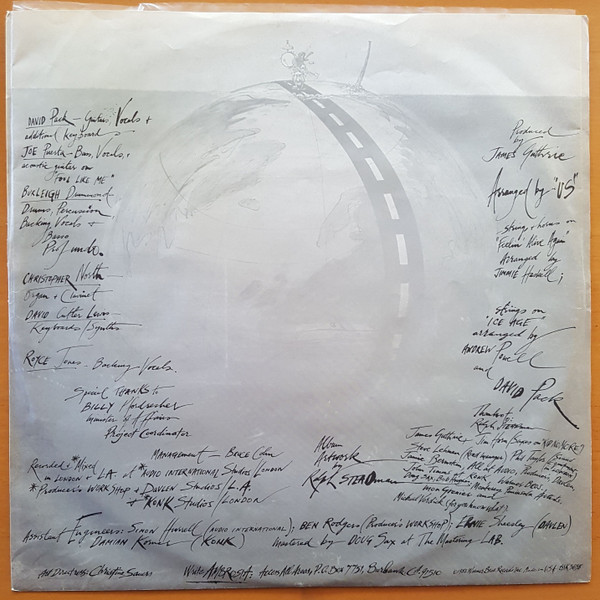 DAVID Pack - Guitars Vocals +
additional keyboards
JOE Puerta - Bass, Vocals, +
acoustic guitar on
"FOOL LIKE ME"
BURLEIGH Drummond
Drums, Percussion
Backing Vocals &
Basso
Profundo.
CHRISTOPHER North
Organ + Clarinet
DAVID Cutler Lewis
Keyboards/Synths
ROYCE Jones - Backing Vocals.
Special THANKS to
BILLY Hardsecker
minister of affairs
Project Coordinator
MANAGEMENT - Bruce Cohn
Recorded & Mixed
in LONDON & L.A. at * AUDIO INTERNATIONAL Studios London
* Producer's WORKSHOP & Davlen Studios L.A.
& * KONK Studios/LONDON
Assistant Engineers: SIMON Hurrell (AUDIO INTERNATIONAL); BEN Rodgers (Producer's WORKSHOP); ERNIE Sheesley (DAVLEN)
DAMIAN Korner (KONK) mastered by DOUG Sax at The Mastering LAB.
Art Direction: Christine Sauers
Write AMBROSIA: P.O. Box 7731, Burbank CA. 91510
Produced
by
JAMES Guthrie
Arranged by "US"
strings + horns on
"Feelin' Alive Again"
Arranged by
JIMMIE Haskell;
strings on
"ICE AGE"
arranged by
ANDREW Powell
and
DAVID Pack
Album
Artwork
by
Ralph STEADman
Ralph Steadman
James Guthrie &